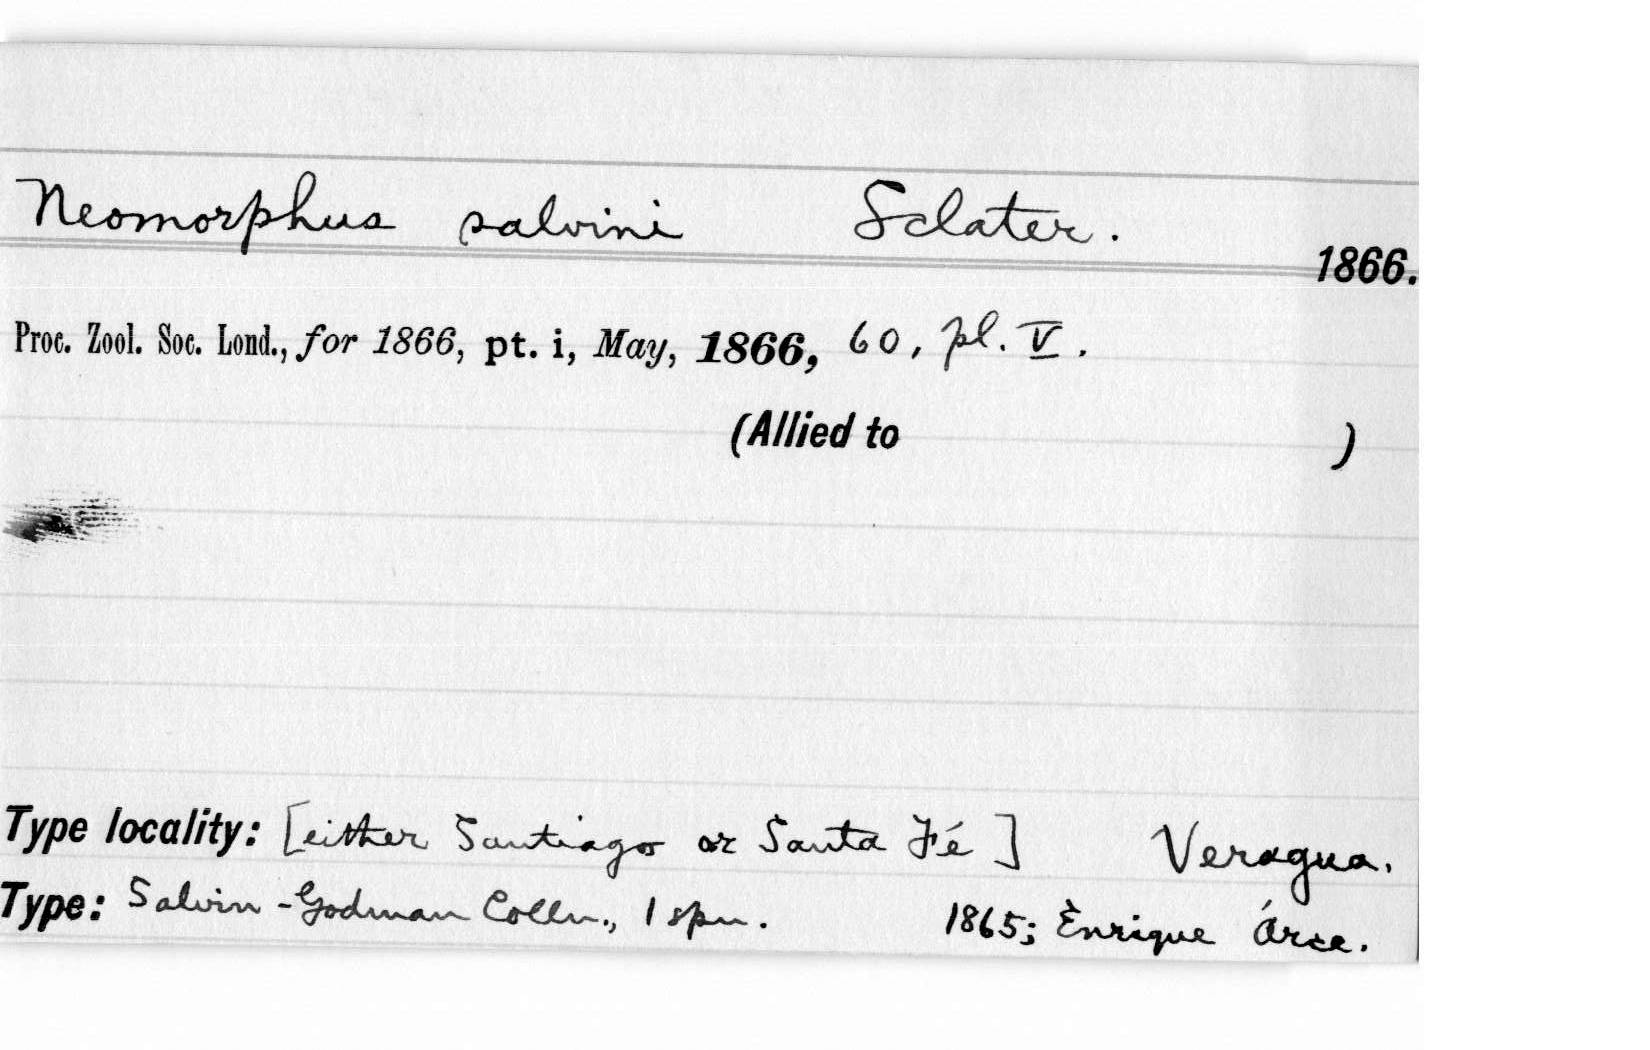 Neomorphus salvini Sclater.
1866.
Proc. Zool. Soc. Lond., for 1866, pt. i, May, 1866, 60, pl. V.
(Allied to )
Type locality: [either Santiago or Santa Fé] Veragua.
Type: Salvin-Godman Colln., 1 spn. 1865; Enrique Árce.